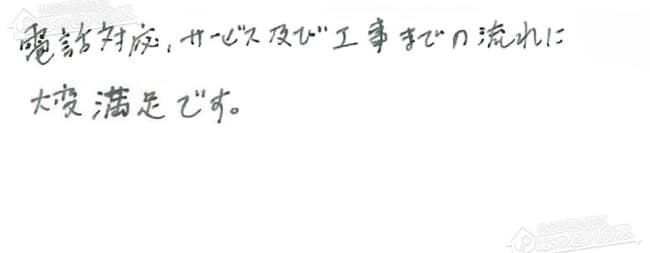 電話対応，サービス及び工事までの流れに
大変満足です。